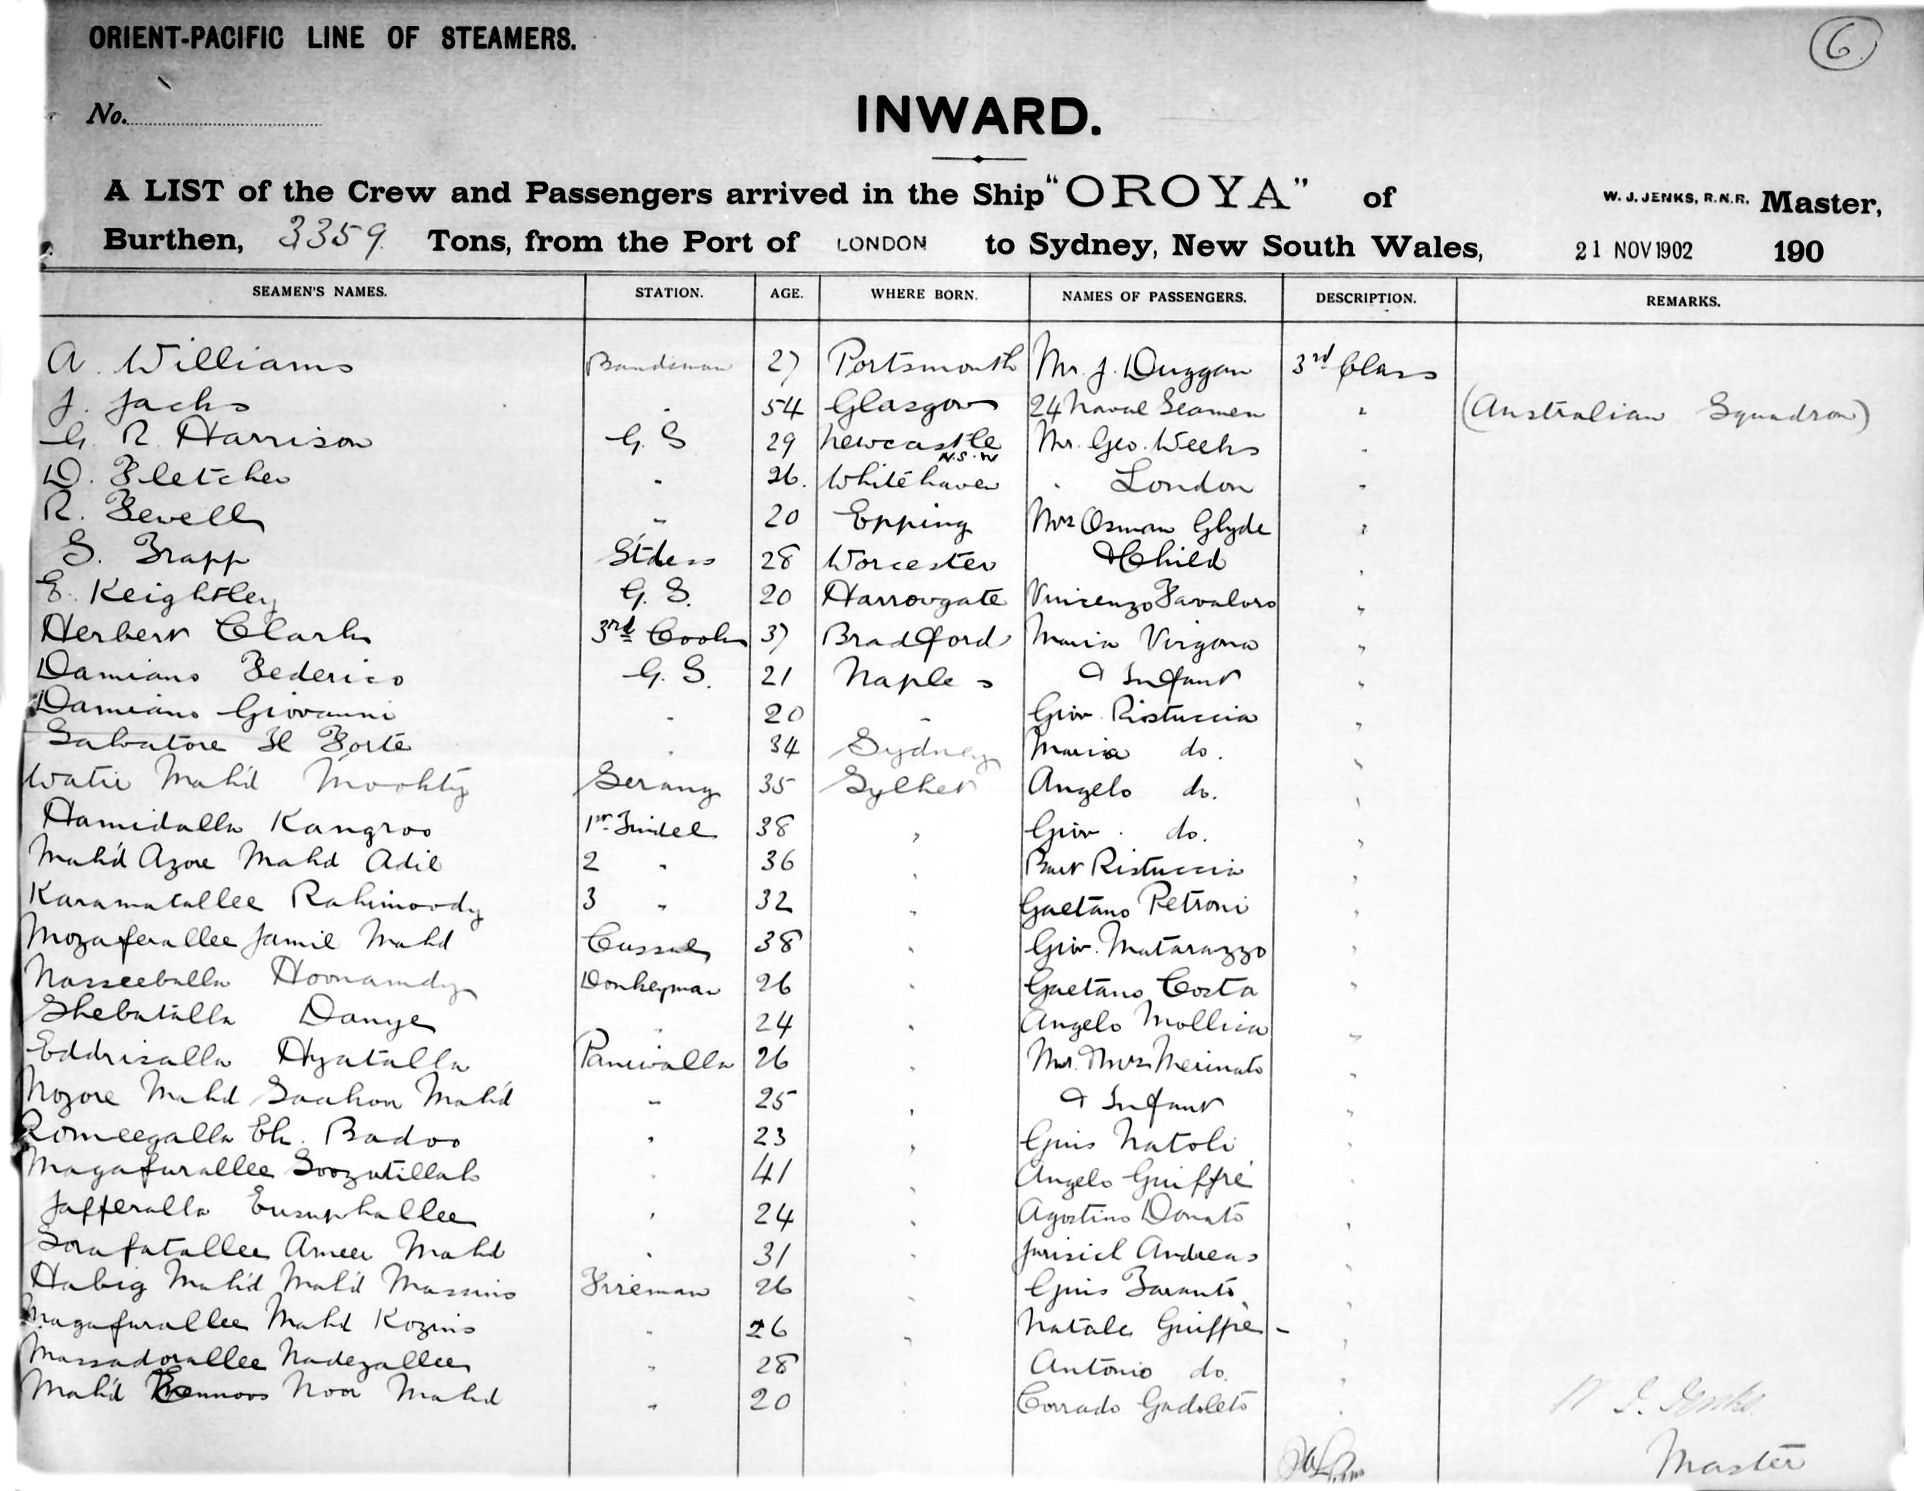 ORIENT-PACIFIC LINE OF STEAMERS.
6
No.
INWARD.
A LIST of the Crew and Passengers arrived in the Ship "OROYA" of W. J. JENKS, R.N.R. Master,
Burthen, 3359 Tons, from the Port of LONDON to Sydney, New South Wales, 21 NOV 1902 190
SEAMEN'S NAMES. STATION. AGE. WHERE BORN. NAMES OF PASSENGERS. DESCRIPTION. REMARKS.
A. Williams Bandsman 27 Portsmouth Mr. J. Duggan 3rd Class
J. Jacks " 54 Glasgow 24 Naval Seamen " (Australian Squadron)
G. R. Harrison G. S 29 Newcastle N.S.W Mr. Geo. Weeks "
D. Fletcher " 26. Whitehaven " London "
R. Fewell " 20 Epping Mrs Osman Glyde "
S. Trapp Stdess 28 Worcester & Child "
E. Keightley G. S. 20 Harrowgate Vincenzo Favaloro "
Herbert Clark 3rd Cook 37 Bradford Maria Virgona "
Damiano Federico G. S. 21 Naples & Infant "
Damiano Giovanni " 20 " Giov. Ristuccia "
Salvatore Il Forte " 34 Sydney Maria do. "
Watir Mahd Moohty Serang 35 Sylhet Angelo do. "
Hamidalla Kangroo 1st Tindel 38 " Giov. do. "
Mahd Azore Mahd Adil 2 " 36 " Bart Ristuccia "
Karamatallee Rahimoody 3 " 32 " Gaetano Petroni "
Mozaferallee Jamil Mahd Cassab 38 " Giov. Matarazzo "
Nasseebulla Hoonamdy Donkeyman 26 " Gaetano Costa "
Shebatalla Danye " 24 " Angelo Mollica "
Eddrisalla Hyatalla Paniwalla 26 " Mr. & Mrs Merinato "
Nozore Mahd Saahon Mahd " 25 " & Infant "
Romeegalla Eh. Badoo " 23 " Guis Natoli "
Magafurallee Soozatillah " 41 " Angelo Guiffrè "
Jafferalla Eusuphallee " 24 " Agostino Donato "
Sorafatallee Ameer Mahd " 31 " Jurisich Andreas "
Habig Mahd Mahd Massins Fireman 26 " Guis Taranto "
Magafurallee Mahd Kozins " 26 " Natale Guiffrè "
Massadorallee Nadezallee " 28 " Antonio do. "
Mahd Noor Mahd " 20 " Corrado Gadaleto "
W. J. Jenks
Master